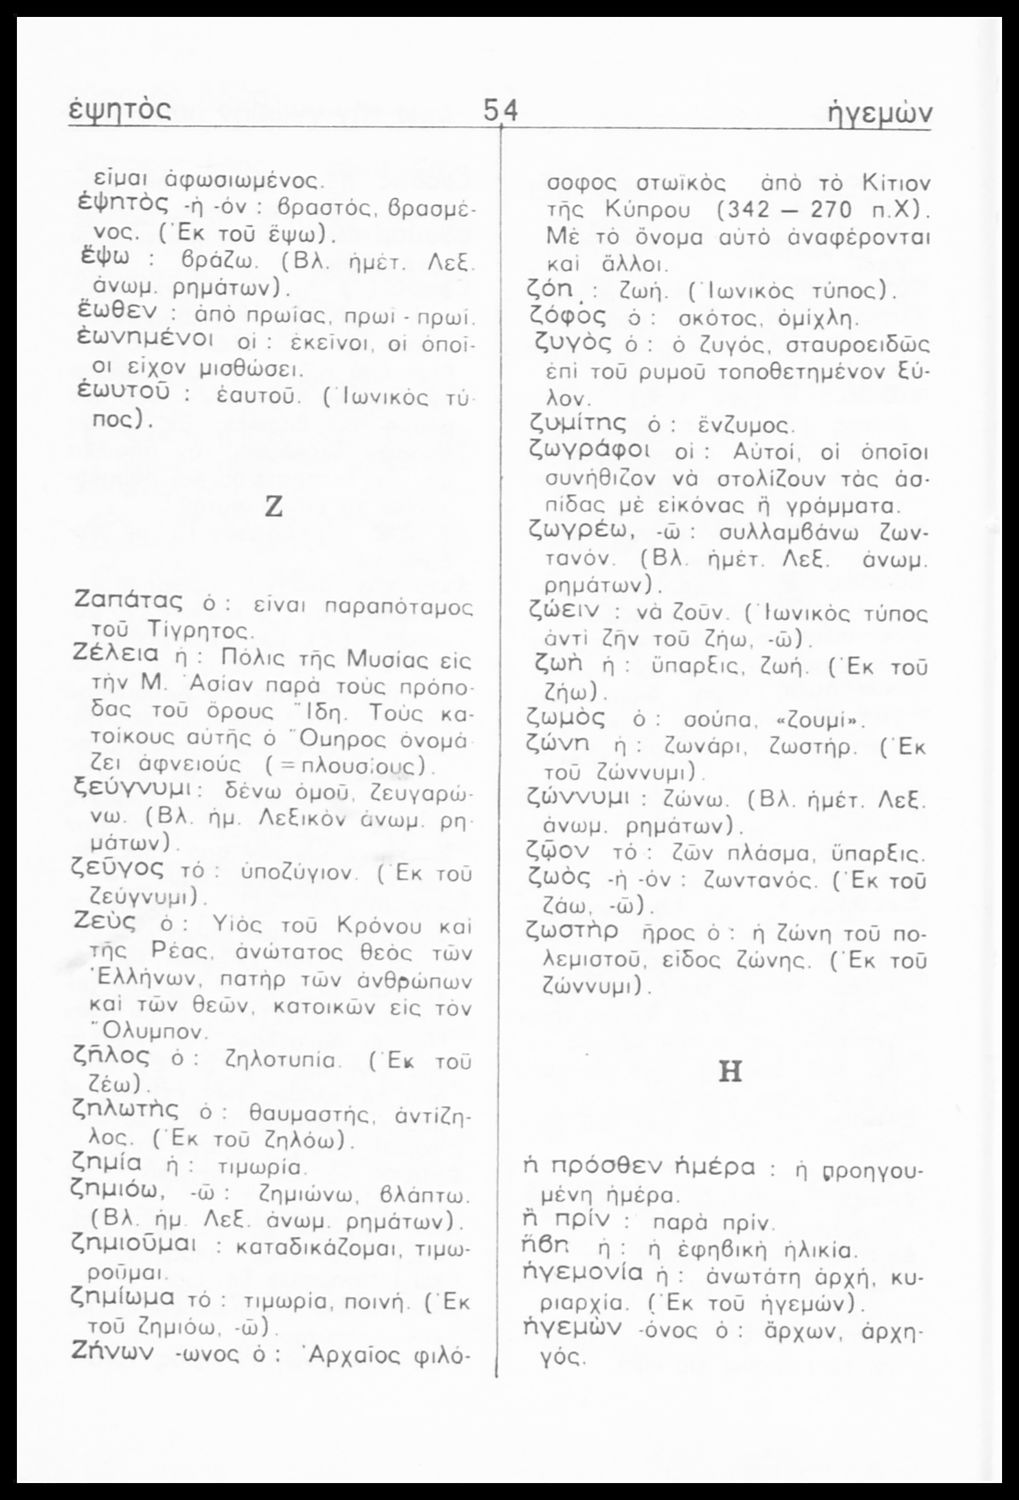 ἑψητὸς 54 ἡγεμὼν
εἶμαι ἀφωσιωμένος.
ἑψητὸς -ὴ -όν : βραστός, βρασμέ-
νος. (Ἐκ τοῦ ἕψω).
ἕψω : βράζω. (Βλ. ἡμέτ. Λεξ.
ἀνωμ. ρημάτων).
ἕωθεν : ἀπὸ πρωίας, πρωὶ - πρωί.
ἐωνημένοι οἱ : ἐκεῖνοι, οἱ ὁποῖ-
οι εἶχον μισθώσει.
ἑωυτοῦ : ἑαυτοῦ. (Ἰωνικὸς τύ-
πος).
Ζ
Ζαπάτας ὁ : εἶναι παραπόταμος
τοῦ Τίγρητος.
Ζέλεια ἡ : Πόλις τῆς Μυσίας εἰς
τὴν Μ. Ἀσίαν παρὰ τοὺς πρόπο-
δας τοῦ ὄρους Ἴδη. Τοὺς κα-
τοίκους αὐτῆς ὁ Ὅμηρος ὀνομά-
ζει ἀφνειοὺς (=πλουσίους).
ξεύγνυμι : δένω ὁμοῦ, ζευγαρώ-
νω. (Βλ. ἡμ. Λεξικὸν ἀνωμ. ρη-
μάτων).
ζεῦγος τό : ὑποζύγιον. (Ἐκ τοῦ
ζεύγνυμι).
Ζεὺς ὁ : Υἱὸς τοῦ Κρόνου καὶ
τῆς Ρέας, ἀνώτατος θεὸς τῶν
Ἑλλήνων, πατὴρ τῶν ἀνθρώπων
καὶ τῶν θεῶν, κατοικῶν εἰς τὸν
Ὄλυμπον.
ζῆλος ὁ : ζηλοτυπία. (Ἐκ τοῦ
ζέω).
ζηλωτὴς ὁ : θαυμαστής, ἀντίζη-
λος. (Ἐκ τοῦ ζηλόω).
ζημία ἡ : τιμωρία.
ζημιόω, -ῶ : ζημιώνω, βλάπτω.
(Βλ. ἡμ. Λεξ. ἀνωμ. ρημάτων).
ζημιοῦμαι : καταδικάζομαι, τιμω-
ροῦμαι.
ζημίωμα τό : τιμωρία, ποινή. (Ἐκ
τοῦ ζημιόω, -ῶ).
Ζήνων -ωνος ὁ : Ἀρχαῖος φιλό-
σοφος στωϊκὸς ἀπὸ τὸ Κίτιον
τῆς Κύπρου (342 — 270 π.Χ).
Μὲ τὸ ὄνομα αὐτὸ ἀναφέρονται
καὶ ἄλλοι.
ζόη : ζωή. (Ἰωνικὸς τύπος).
ζόφος ὁ : σκότος, ὁμίχλη.
ζυγὸς ὁ : ὁ ζυγός, σταυροειδῶς
ἐπὶ τοῦ ρυμοῦ τοποθετημένον ξύ-
λον.
ζυμίτης ὁ : ἔνζυμος.
ζωγράφοι οἱ : Αὐτοί, οἱ ὁποῖοι
συνήθιζον νὰ στολίζουν τὰς ἀσ-
πίδας μὲ εἰκόνας ἢ γράμματα.
ζωγρέω, -ῶ : συλλαμβάνω ζων-
τανόν. (Βλ. ἡμέτ. Λεξ. ἀνωμ.
ρημάτων).
ζώειν : νὰ ζοῦν. (Ἰωνικὸς τύπος
ἀντὶ ζῆν τοῦ ζήω, -ῶ).
ζωὴ ἡ : ὕπαρξις, ζωή. (Ἐκ τοῦ
ζήω).
ζωμὸς ὁ : σούπα, «ζουμί».
ζώνη ἡ : ζωνάρι, ζωστήρ. (Ἐκ
τοῦ ζώννυμι).
ζώννυμι : ζώνω. (Βλ. ἡμέτ. Λεξ.
ἀνωμ. ρημάτων).
ζῷον τό : ζῶν πλάσμα, ὕπαρξις.
ζωὸς -ὴ -όν : ζωντανός. (Ἐκ τοῦ
ζάω, -ῶ).
ζωστὴρ ῆρος ὁ : ἡ ζώνη τοῦ πο-
λεμιστοῦ, εἶδος ζώνης. (Ἐκ τοῦ
ζώννυμι).
Η
ἡ πρόσθεν ἡμέρα : ἡ προηγου-
μένη ἡμέρα.
ἢ πρίν : παρὰ πρίν.
ἥβη ἡ : ἡ ἐφηβικὴ ἡλικία.
ἡγεμονία ἡ : ἀνωτάτη ἀρχή, κυ-
ριαρχία. (Ἐκ τοῦ ἡγεμών).
ἡγεμὼν -όνος ὁ : ἄρχων, ἀρχη-
γός.